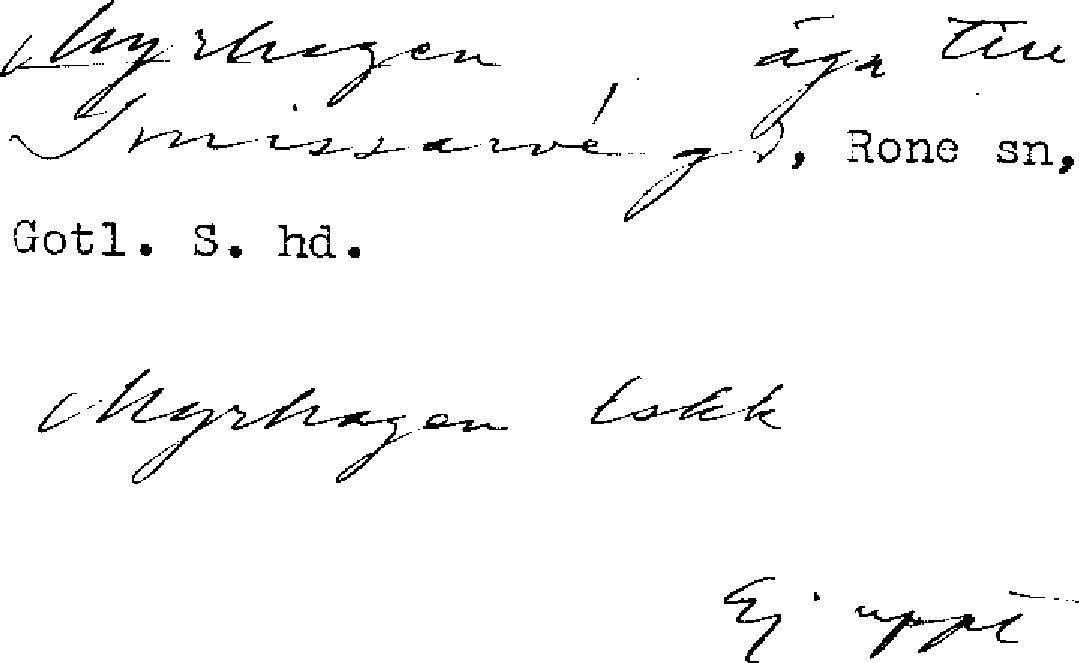 Myrhagen äga till
Smissarvé gd, Rone sn,
Gotl. S. hd.
Myrhagen Eskk
Ej uppt